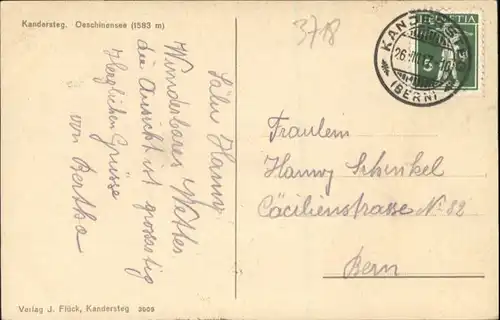 Kandersteg. Oeschinensee (1583 m)
3718
KANDERSTEG
(BERN)
HELVETIA
5
Salu Hanny
Wunderbares Wetter
die Aussicht ist grossartig
Herzlichen Grüsse
von Bertha
Fraulein
Hanny Schinkel
Cäcilienstrasse No 32
Bern
Verlag J. Flück, Kandersteg 3609